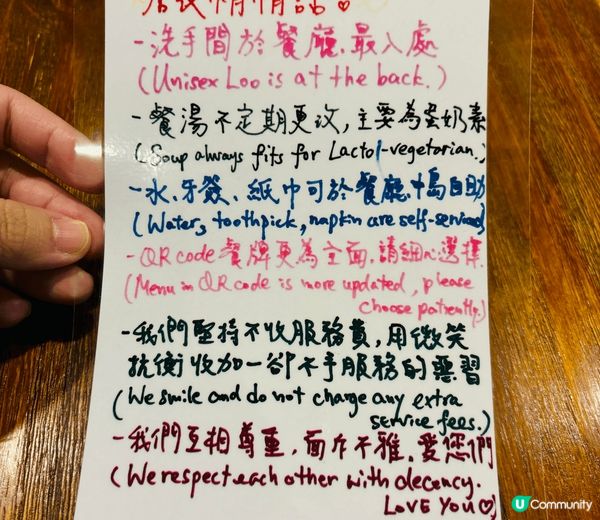 情話♡
-洗手間於餐廳最入處
(Unisex Loo is at the back.)
-餐湯不定期更改,主要為蛋奶素
(Soup always fits for Lactol-vegetarian.)
-水、牙簽、紙巾可於餐廳中島自助
(Water, toothpick, napkin are self-serviced)
-QR code餐牌更為全面,請細心選擇
(Menu in QR code is more updated, please
choose patiently.)
-我們堅持不收服務費,用微笑
抗衡收加一卻不予服務的惡習
(We smile and do not charge any extra
service fees.)
-我們互相尊重,面斥不雅,愛您們
(We respect each other with decency.
LOVE YOU♡)
U Community